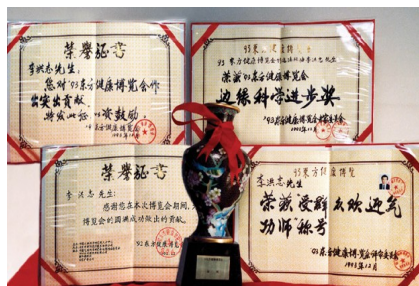 荣誉证书
李洪志先生：
您对'93东方健康博览会作
出突出贡献，
特发此证 以资鼓励。
'93东方健康博览会
1993年12月
'93东方健康博览会
荣获'93东方健康博览会
边缘科学进步奖
'93东方健康博览会
1993年12月
荣誉证书
李洪志先生：
感谢您在本次博览会期间，为
博览会的圆满成功做出的贡献。
'93东方健康博览会
93东方健康博览
李洪志先生
荣获受群众欢迎气
功师"称号
'93东方健康博览会
1993年12月